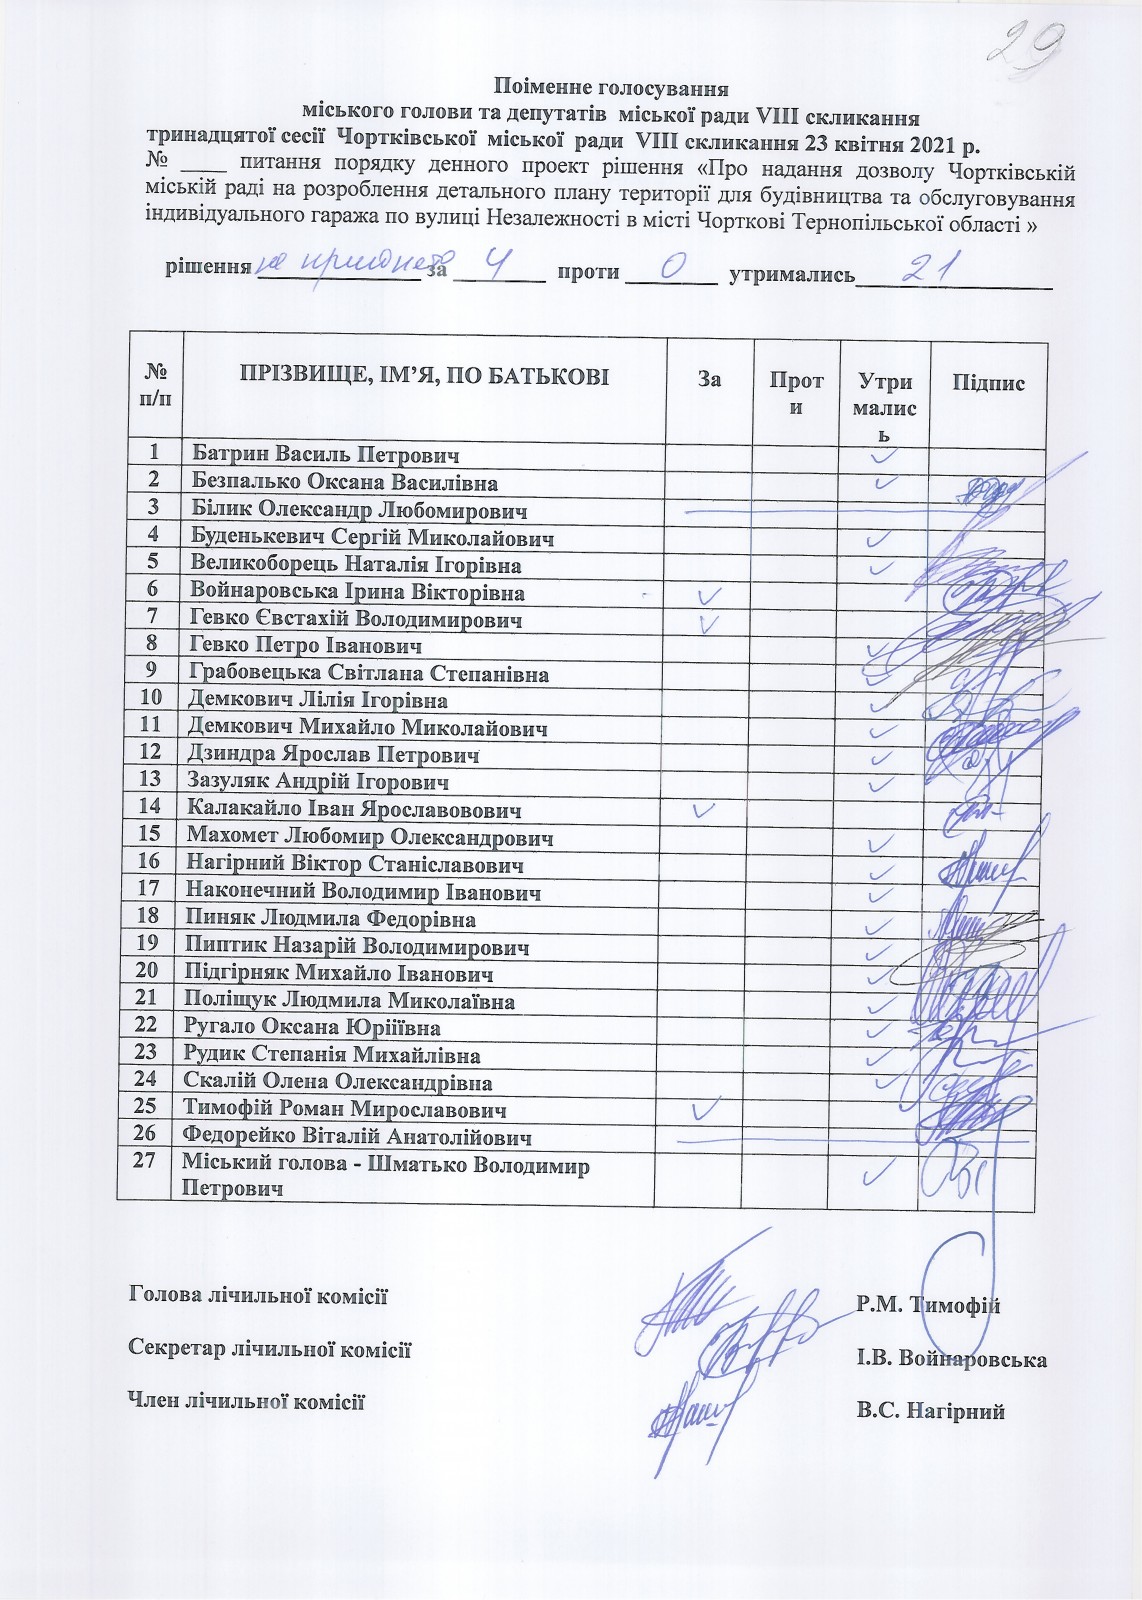 29
Поіменне голосування
міського голови та депутатів міської ради VIII скликання
тринадцятої сесії Чортківської міської ради VIII скликання 23 квітня 2021 р.
№ ____ питання порядку денного проект рішення «Про надання дозволу Чортківській
міській раді на розроблення детального плану території для будівництва та обслуговування
індивідуального гаража по вулиці Незалежності в місті Чорткові Тернопільської області »
рішення не прийнято за 4 проти 0 утримались 21
№ п/п ПРІЗВИЩЕ, ІМ’Я, ПО БАТЬКОВІ За Прот и Утри малис ь Підпис
1 Батрин Василь Петрович ✓
2 Безпалько Оксана Василівна ✓
3 Білик Олександр Любомирович
4 Буденькевич Сергій Миколайович ✓
5 Великоборець Наталія Ігорівна ✓
6 Войнаровська Ірина Вікторівна ✓
7 Гевко Євстахій Володимирович ✓
8 Гевко Петро Іванович ✓
9 Грабовецька Світлана Степанівна ✓
10 Демкович Лілія Ігорівна ✓
11 Демкович Михайло Миколайович ✓
12 Дзиндра Ярослав Петрович ✓
13 Зазуляк Андрій Ігорович ✓
14 Калакайло Іван Ярославовович ✓
15 Махомет Любомир Олександрович ✓
16 Нагірний Віктор Станіславович ✓
17 Наконечний Володимир Іванович ✓
18 Пиняк Людмила Федорівна ✓
19 Пиптик Назарій Володимирович ✓
20 Підгірняк Михайло Іванович ✓
21 Поліщук Людмила Миколаївна ✓
22 Ругало Оксана Юріїївна ✓
23 Рудик Степанія Михайлівна ✓
24 Скалій Олена Олександрівна ✓
25 Тимофій Роман Мирославович ✓
26 Федорейко Віталій Анатолійович
27 Міський голова - Шматько Володимир
Петрович ✓
Голова лічильної комісії Р.М. Тимофій
Секретар лічильної комісії І.В. Войнаровська
Член лічильної комісії В.С. Нагірний